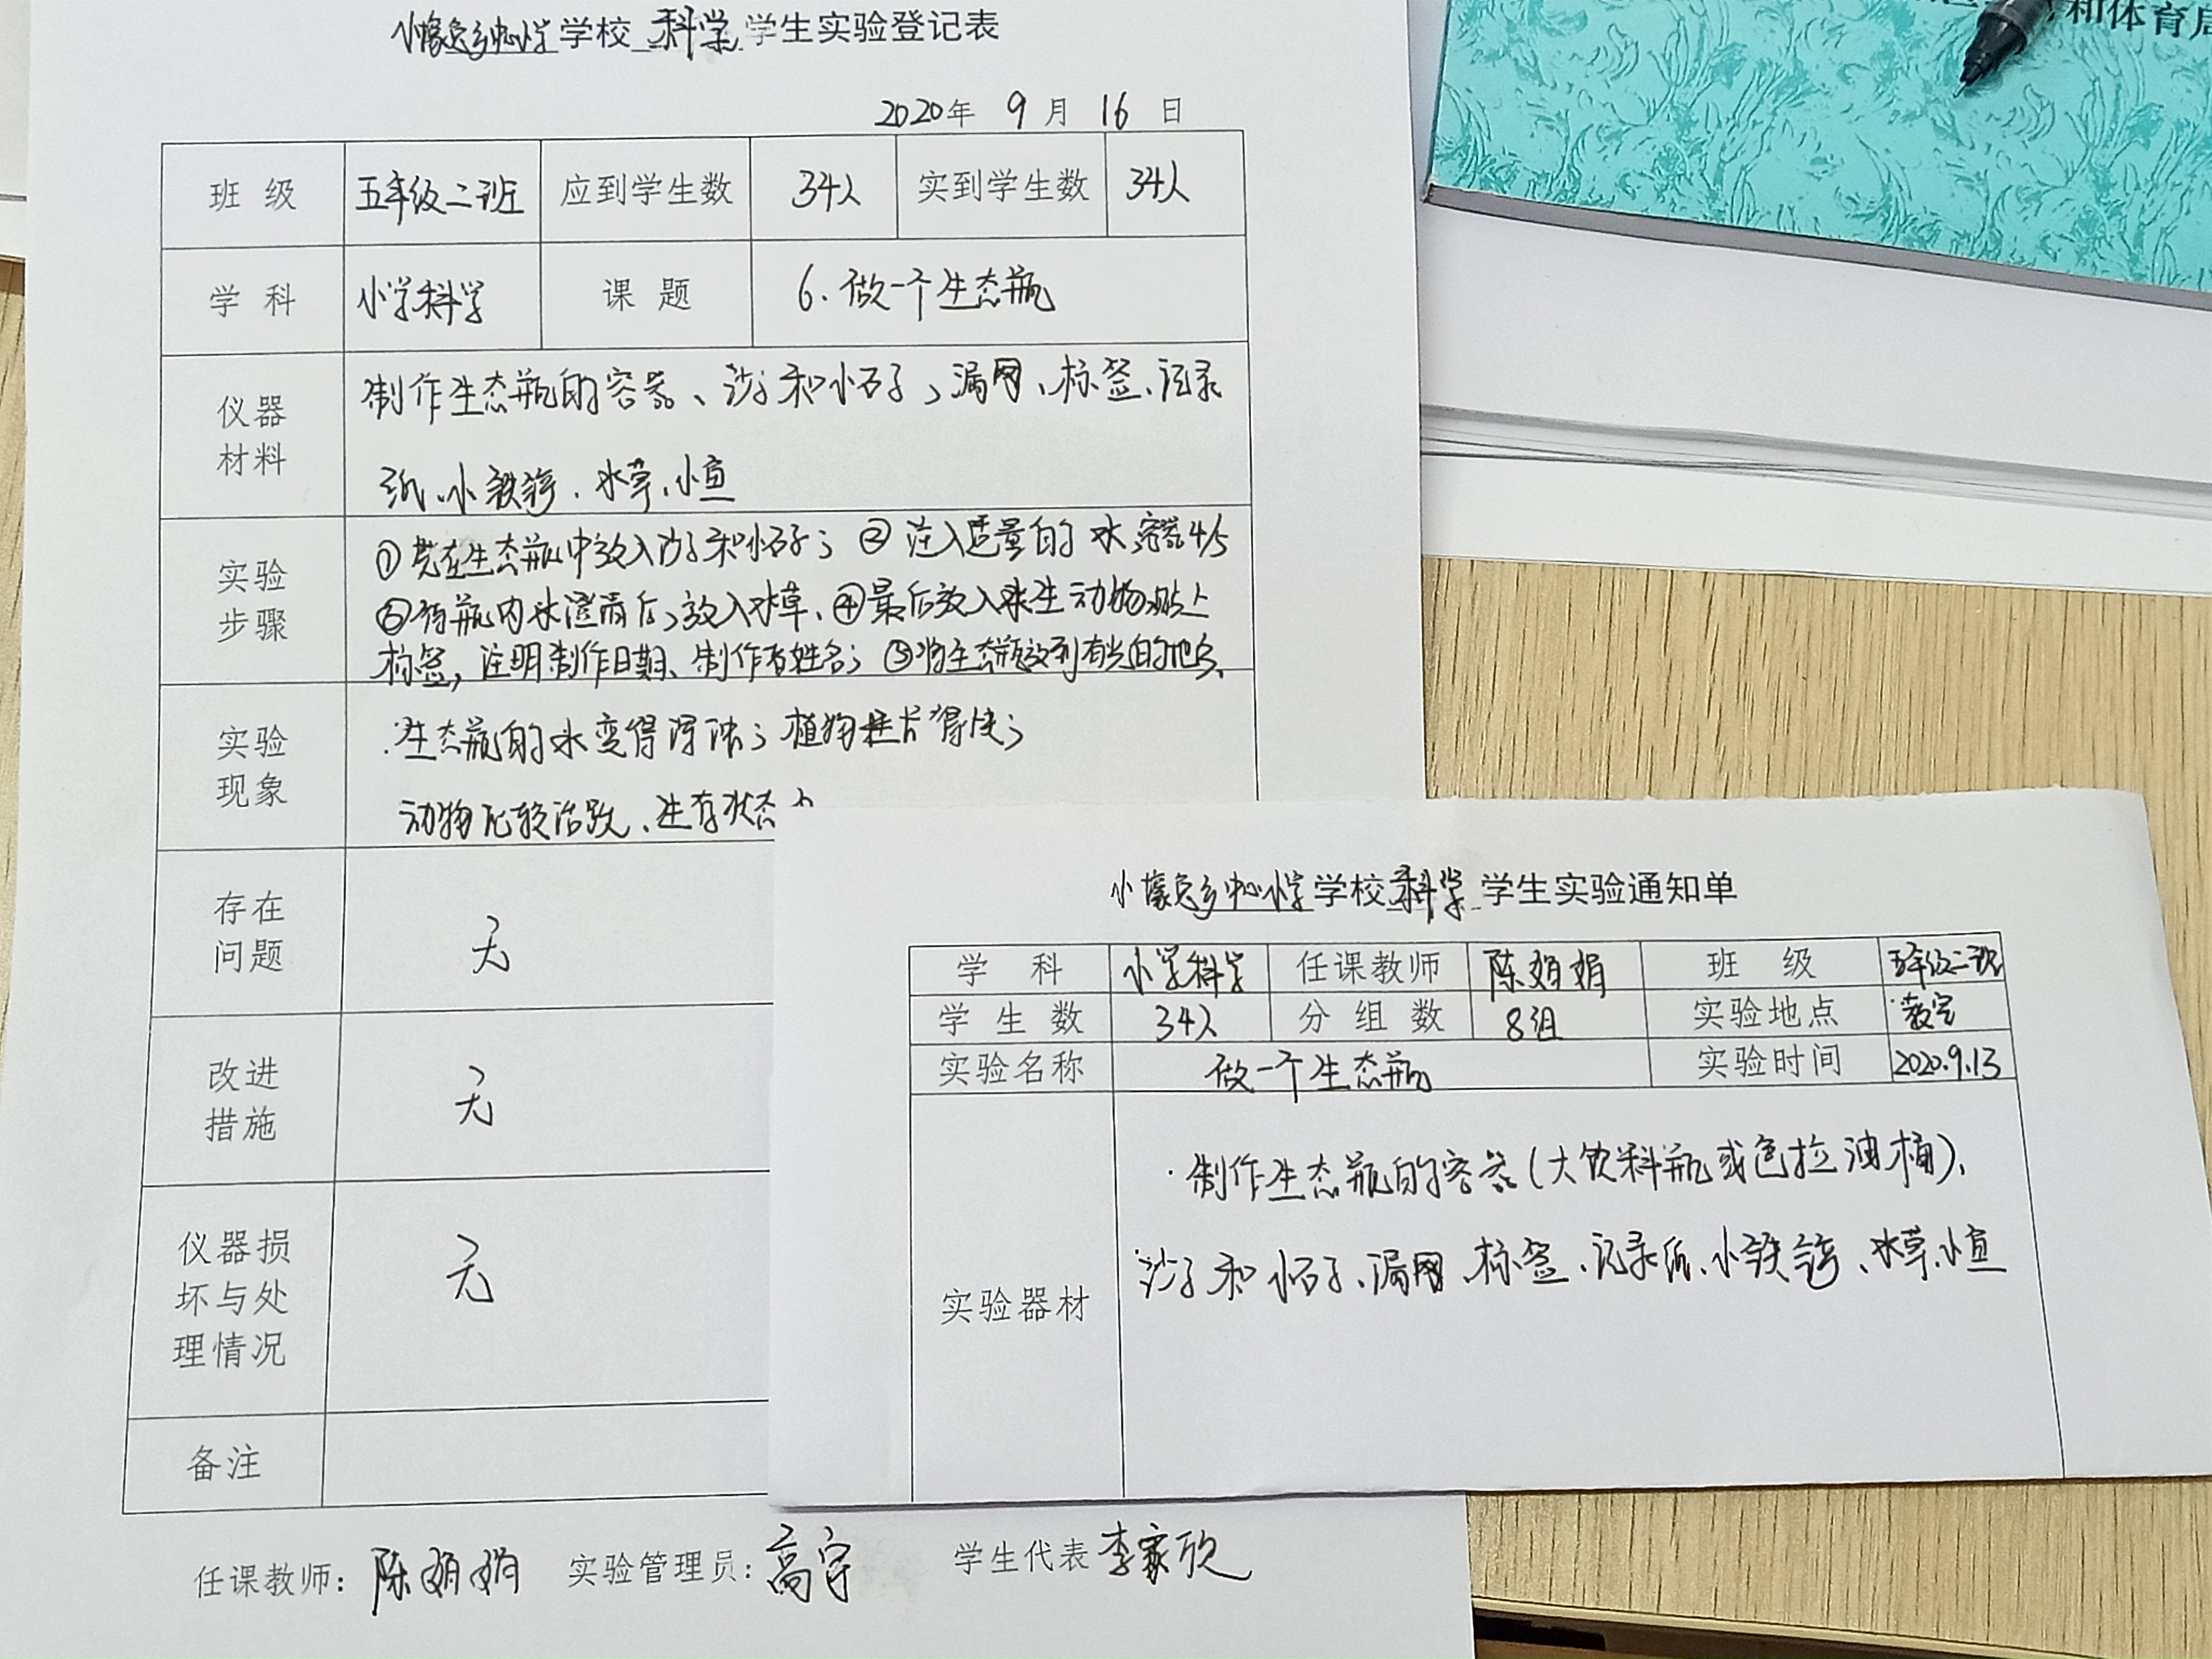 小壕兔乡中心小学学校 科学 学生实验登记表
2020年 9月 16日
班级 五年级二班 应到学生数 34人 实到学生数 34人
学科 小学科学 课题 6.做一个生态瓶
仪器材料 制作生态瓶的容器、沙子和小石子、漏网、标签、记录
纸、小铁锹、水草、小鱼
实验步骤 ①先在生态瓶中放入沙子和小石子;②注入适量的水,容器4/5
③待瓶内水澄清后,放入水草、④最后放入水生动物,贴上
标签,注明制作日期、制作者姓名;⑤将生态瓶放到有光的地方、
实验现象 生态瓶的水变得浑浊;植物生长得快;
动物比较活跃、生存状态
存在问题 无
改进措施 无
仪器损坏与处理情况 无
备注
任课教师:陈娟娟 实验管理员:高宇 学生代表 李家欣
小壕兔乡中心小学学校 科学 学生实验通知单
学科 小学科学 任课教师 陈娟娟 班级 五年级二班
学生数 34人 分组数 8组 实验地点 教室
实验名称 做一个生态瓶 实验时间 2020.9.13
实验器材 制作生态瓶的容器(大饮料瓶或色拉油桶)、
沙子和小石子、漏网、标签、记录纸、小铁锹、水草、小鱼
和体育局